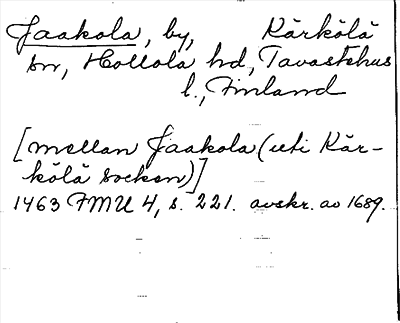 Jaakola, by, Kärkölä
sn, Hollola hd, Tavastehus
l., Finland
[mellan Jaakola (uti Kär-
kölä socken)]
1463 FMU 4, s. 221. avskr. av 1689.